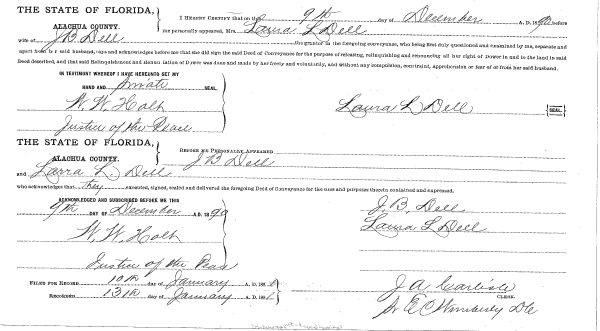 THE STATE OF FLORIDA,
ALACHUA COUNTY.
I HEREBY CERTIFY That on the 9th day of December A. D. 1890, before
me personally appeared, Mrs. Laura L Dell
wife of J B Dell the grantor in the foregoing conveyance, who being first duly questioned and examined by me, separate and
apart from her said husband, says and acknowledges before me that she did sign the said Deed of Conveyance for the purpose of releasing, relinquishing and renouncing all her right of Dower in and to the land in said
Deed described, and that said Relinquishment and Renunciation of Dower was done and made by her freely and voluntarily, and without any compulsion, constraint, apprehension or fear of or from her said husband.
IN TESTIMONY WHEREOF I HAVE HEREUNTO SET MY
HAND AND private SEAL.
W. W. Holt
Justice of the Peace
Laura L Dell SEAL
THE STATE OF FLORIDA,
ALACHUA COUNTY.
BEFORE ME PERSONALLY APPEARED J B Dell
and Laura L. Dell
who acknowledges that they executed, signed, sealed and delivered the foregoing Deed of Conveyance for the uses and purposes therein contained and expressed.
ACKNOWLEDGED AND SUBSCRIBED BEFORE ME THIS
9th DAY OF December A. D. 1890
W. W. Holt
Justice of the Peace
J. B. Dell
Laura L Dell
FILED FOR RECORD day of January A. D. 189
RECORDED 13th day of January A. D. 189
J A Carlisle
CLERK.
E C Wimberly D C